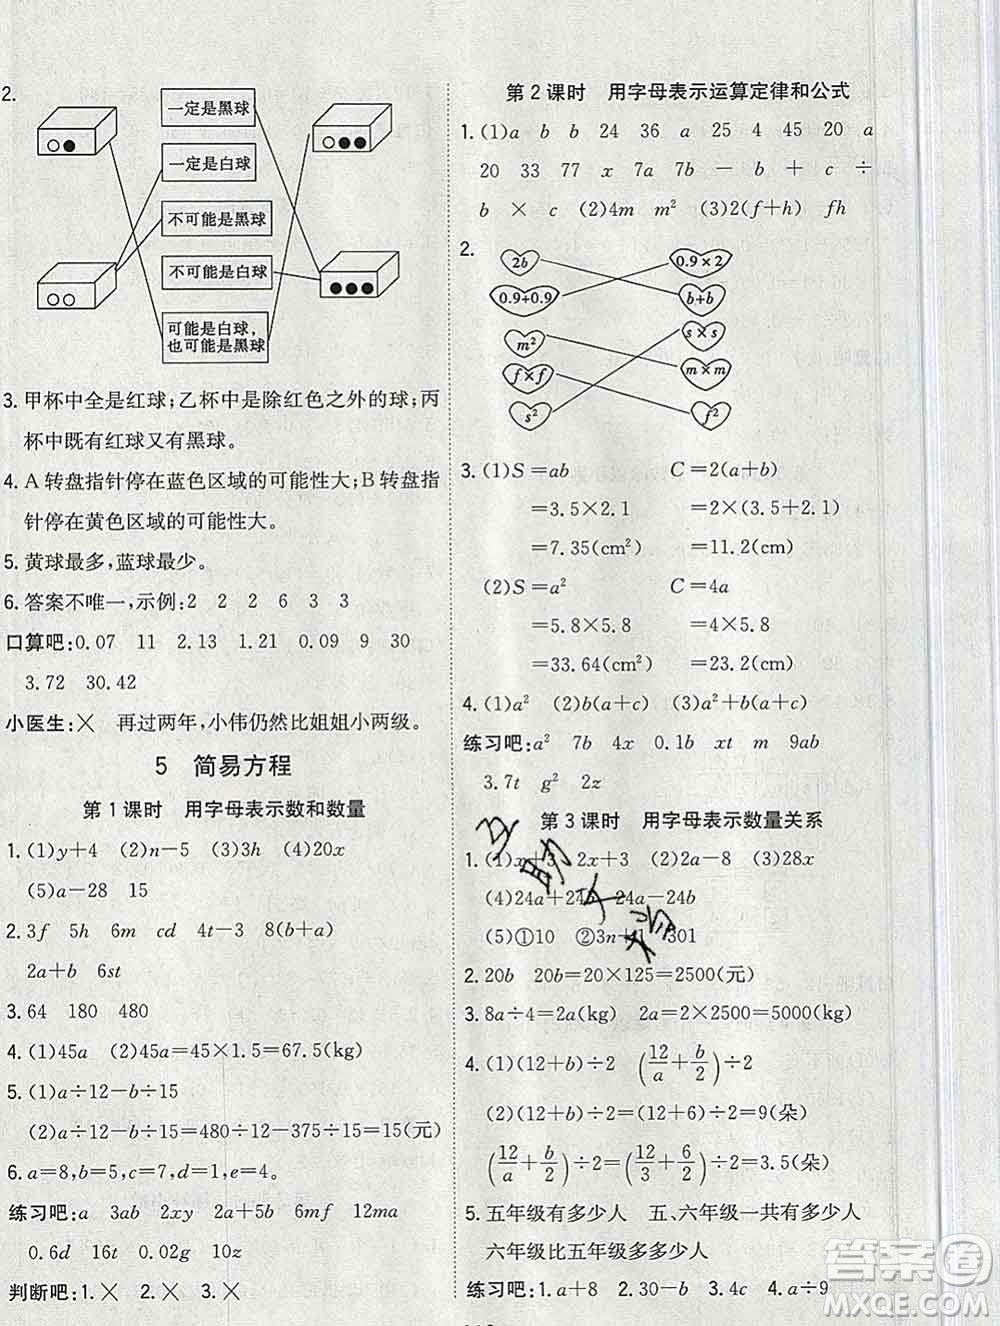 2.
一定是黑球
一定是白球
不可能是黑球
不可能是白球
可能是白球,
也可能是黑球
3. 甲杯中全是红球;乙杯中是除红色之外的球;丙
杯中既有红球又有黑球。
4. A转盘指针停在蓝色区域的可能性大;B转盘指
针停在黄色区域的可能性大。
5. 黄球最多,蓝球最少。
6. 答案不唯一,示例:2 2 2 6 3 3
口算吧:0.07 11 2.13 1.21 0.09 9 30
3.72 30.42
小医生:× 再过两年,小伟仍然比姐姐小两级。
5 简易方程
第1课时 用字母表示数和数量
1. (1)y+4 (2)n-5 (3)3h (4)20x
(5)a-28 15
2. 3f 5h 6m cd 4t-3 8g
2a+b 6st
3. 64 180 480
4. (1)45a (2)45a=45×1.5=67.5(kg)
5. (1)a÷12-b÷15
(2)a÷12-b÷15=480÷12-375÷15=15(元)
6. a=8,b=5,c=7,d=1,e=4。
练习吧:a 3ab 2xy 2a+5 6mf 12m
0.6d 16t 0.2y 10z
判断吧:1.× 2.× 3.×
第2课时 用字母表示运算定律和公式
1. (1)a b b 24 36 a 25 4 45 20 a
20 33 77 x 7a 7 - b + c ÷
b × c (2)4m m² (3)2(f+h) fh
2.
2b 0.9×2
0.9+0.9 b+b
m² s×s
f×f m×m
s² f²
3. (1)S=ab C=2(a+b)
=3.5×2.1 =2×(3.5+2.1)
=7.35(cm²) =11.2(cm)
(2)S=a² C=4a
=5.8×5.8 =4×5.8
=33.64(cm²) =23.2(cm)
4. (1)a² (2)b(a+c) (3)b(a+c)
练习吧:a² 7b 4x xt m 9ab
3.7t g² 2z
第3课时 用字母表示数量关系
1. (1)x+3 2x+3 (2)2a-8 (3)28x
(4)24a+24b 24a-24b
(5)①10 ②3n+1 301
2. 20b 20b=20×125=2500(元)
3. 8a÷4=2a(kg) 2a=2×2500=5000(kg)
4. (1)(12+b)÷2 (12/a+b/2)÷2
(2)(12+b)÷2=(12+6)÷2=9(朵)
(12/a+b/2)÷2=(12/3+6/2)÷2=3.5(朵)
5. 五年级有多少人 五、六年级一共有多少人
六年级比五年级多多少人
练习吧:1. a+8 2. 30-b 3. 4c 4. a÷9
答案圈
MXQE.COM